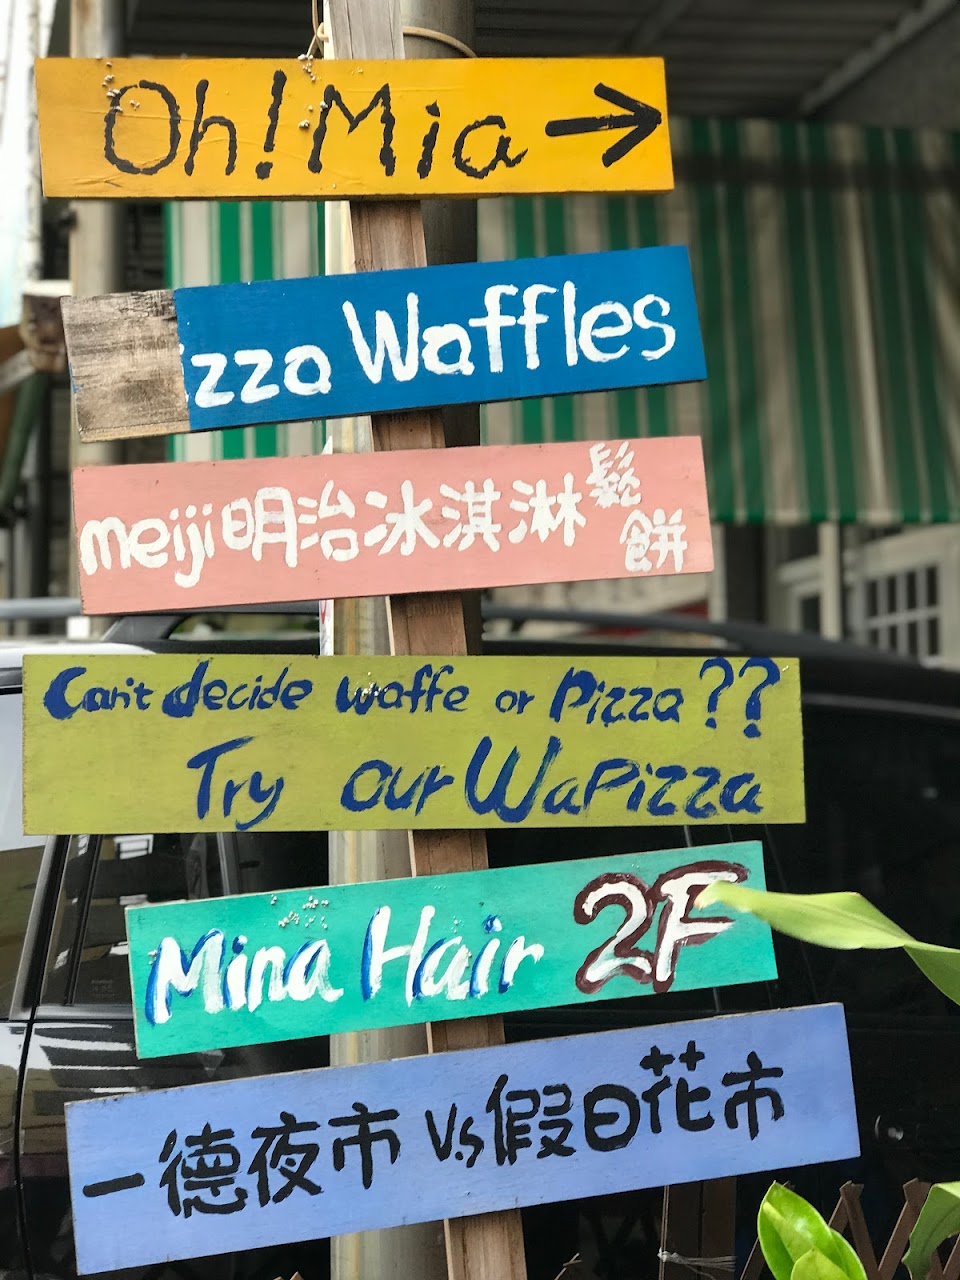 Oh! Mia →
izza Waffles
meiji明治冰淇淋鬆餅
Can't decide waffe or Pizza??
Try our WaPizza
Mina Hair 2F
一德夜市 Vs 假日花市